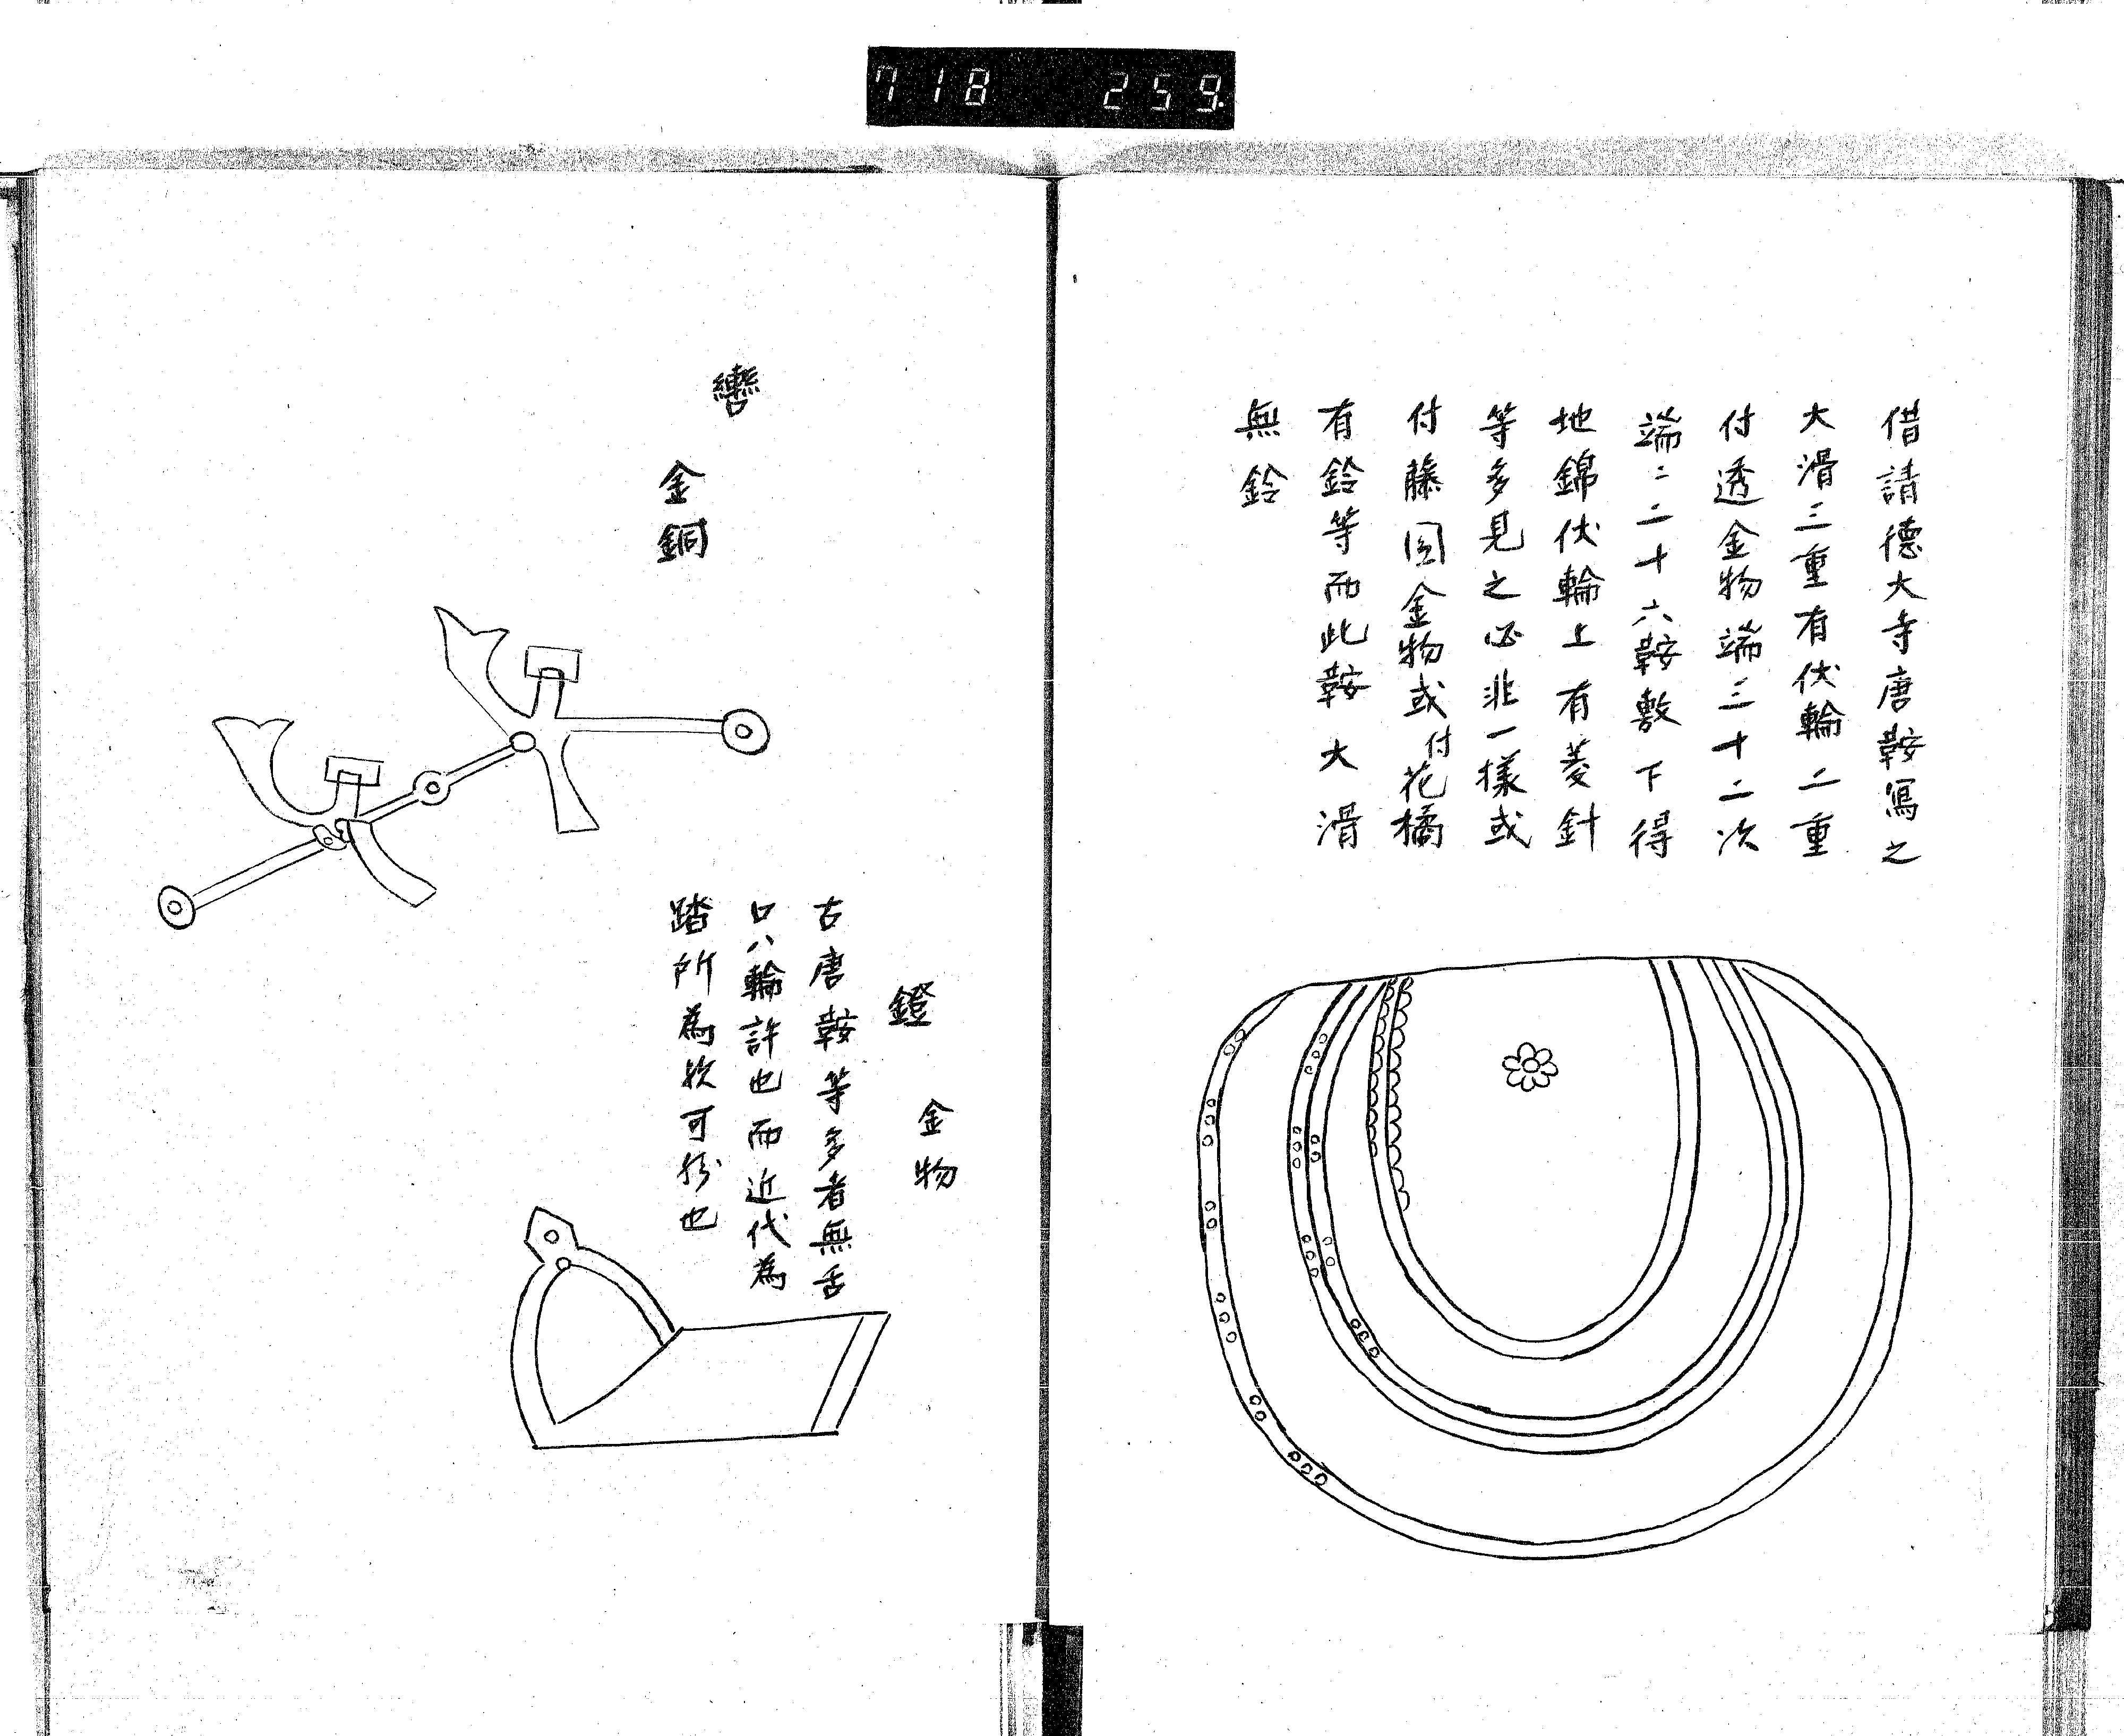 718 259
借請德大寺唐鞍寫之
大滑三重有伏輪二重
付透金物端三十二次
端ニ二十六鞍敷下得
地錦伏輪上有菱針
等多見之必非一樣或
付藤圓金物或付花橘
有鈴等而此鞍大滑
無鈴
轡
金銅
鐙
金物
古唐鞍等多者無舌
只八輪許也而近代為
踏所為 可 也